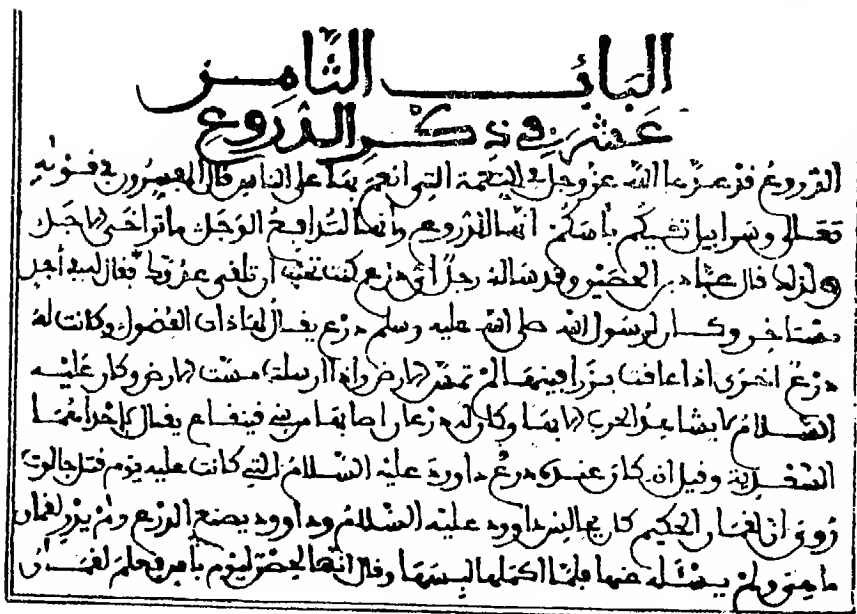 الباب الثامن
عشر في ذكر الدروع
الدروع قد عدها الله عز وجل في النعمة التي انعم بها على الناس قال المفسرون في قوله
تعلى وسرابيل تقيكم بأسكم انها الدروع وانها
ولذلك قال عباد بن الحصين وقد ساله رجل اي درع كنت ان تلقى عدوك فقال لبيد اجل
مستاخر وكان لرسول الله صلى الله عليه وسلم درع يقال لها ذات الفضول وكانت له
درع اخرى اذا علقت بزرافينها لم تمس الارض واذا ارسلت مست الارض وكان عليه
السلام لا يشاهد الحرب الا بها وكان له درعان اصابهما من بني قينقاع يقال لاحداهما
السغدية وقيل ان كان عنده درع داوود عليه السلام التي كانت عليه يوم قتل جالوت
روي ان لقمان الحكيم كان يجالس داوود عليه السلام وداوود يصنع الدرع ولم يدر لقمان
ما هي ولم يسئله عنها فلما اكملها لبسها وقال انها لحصن ليوم بأس فعلم لقمان